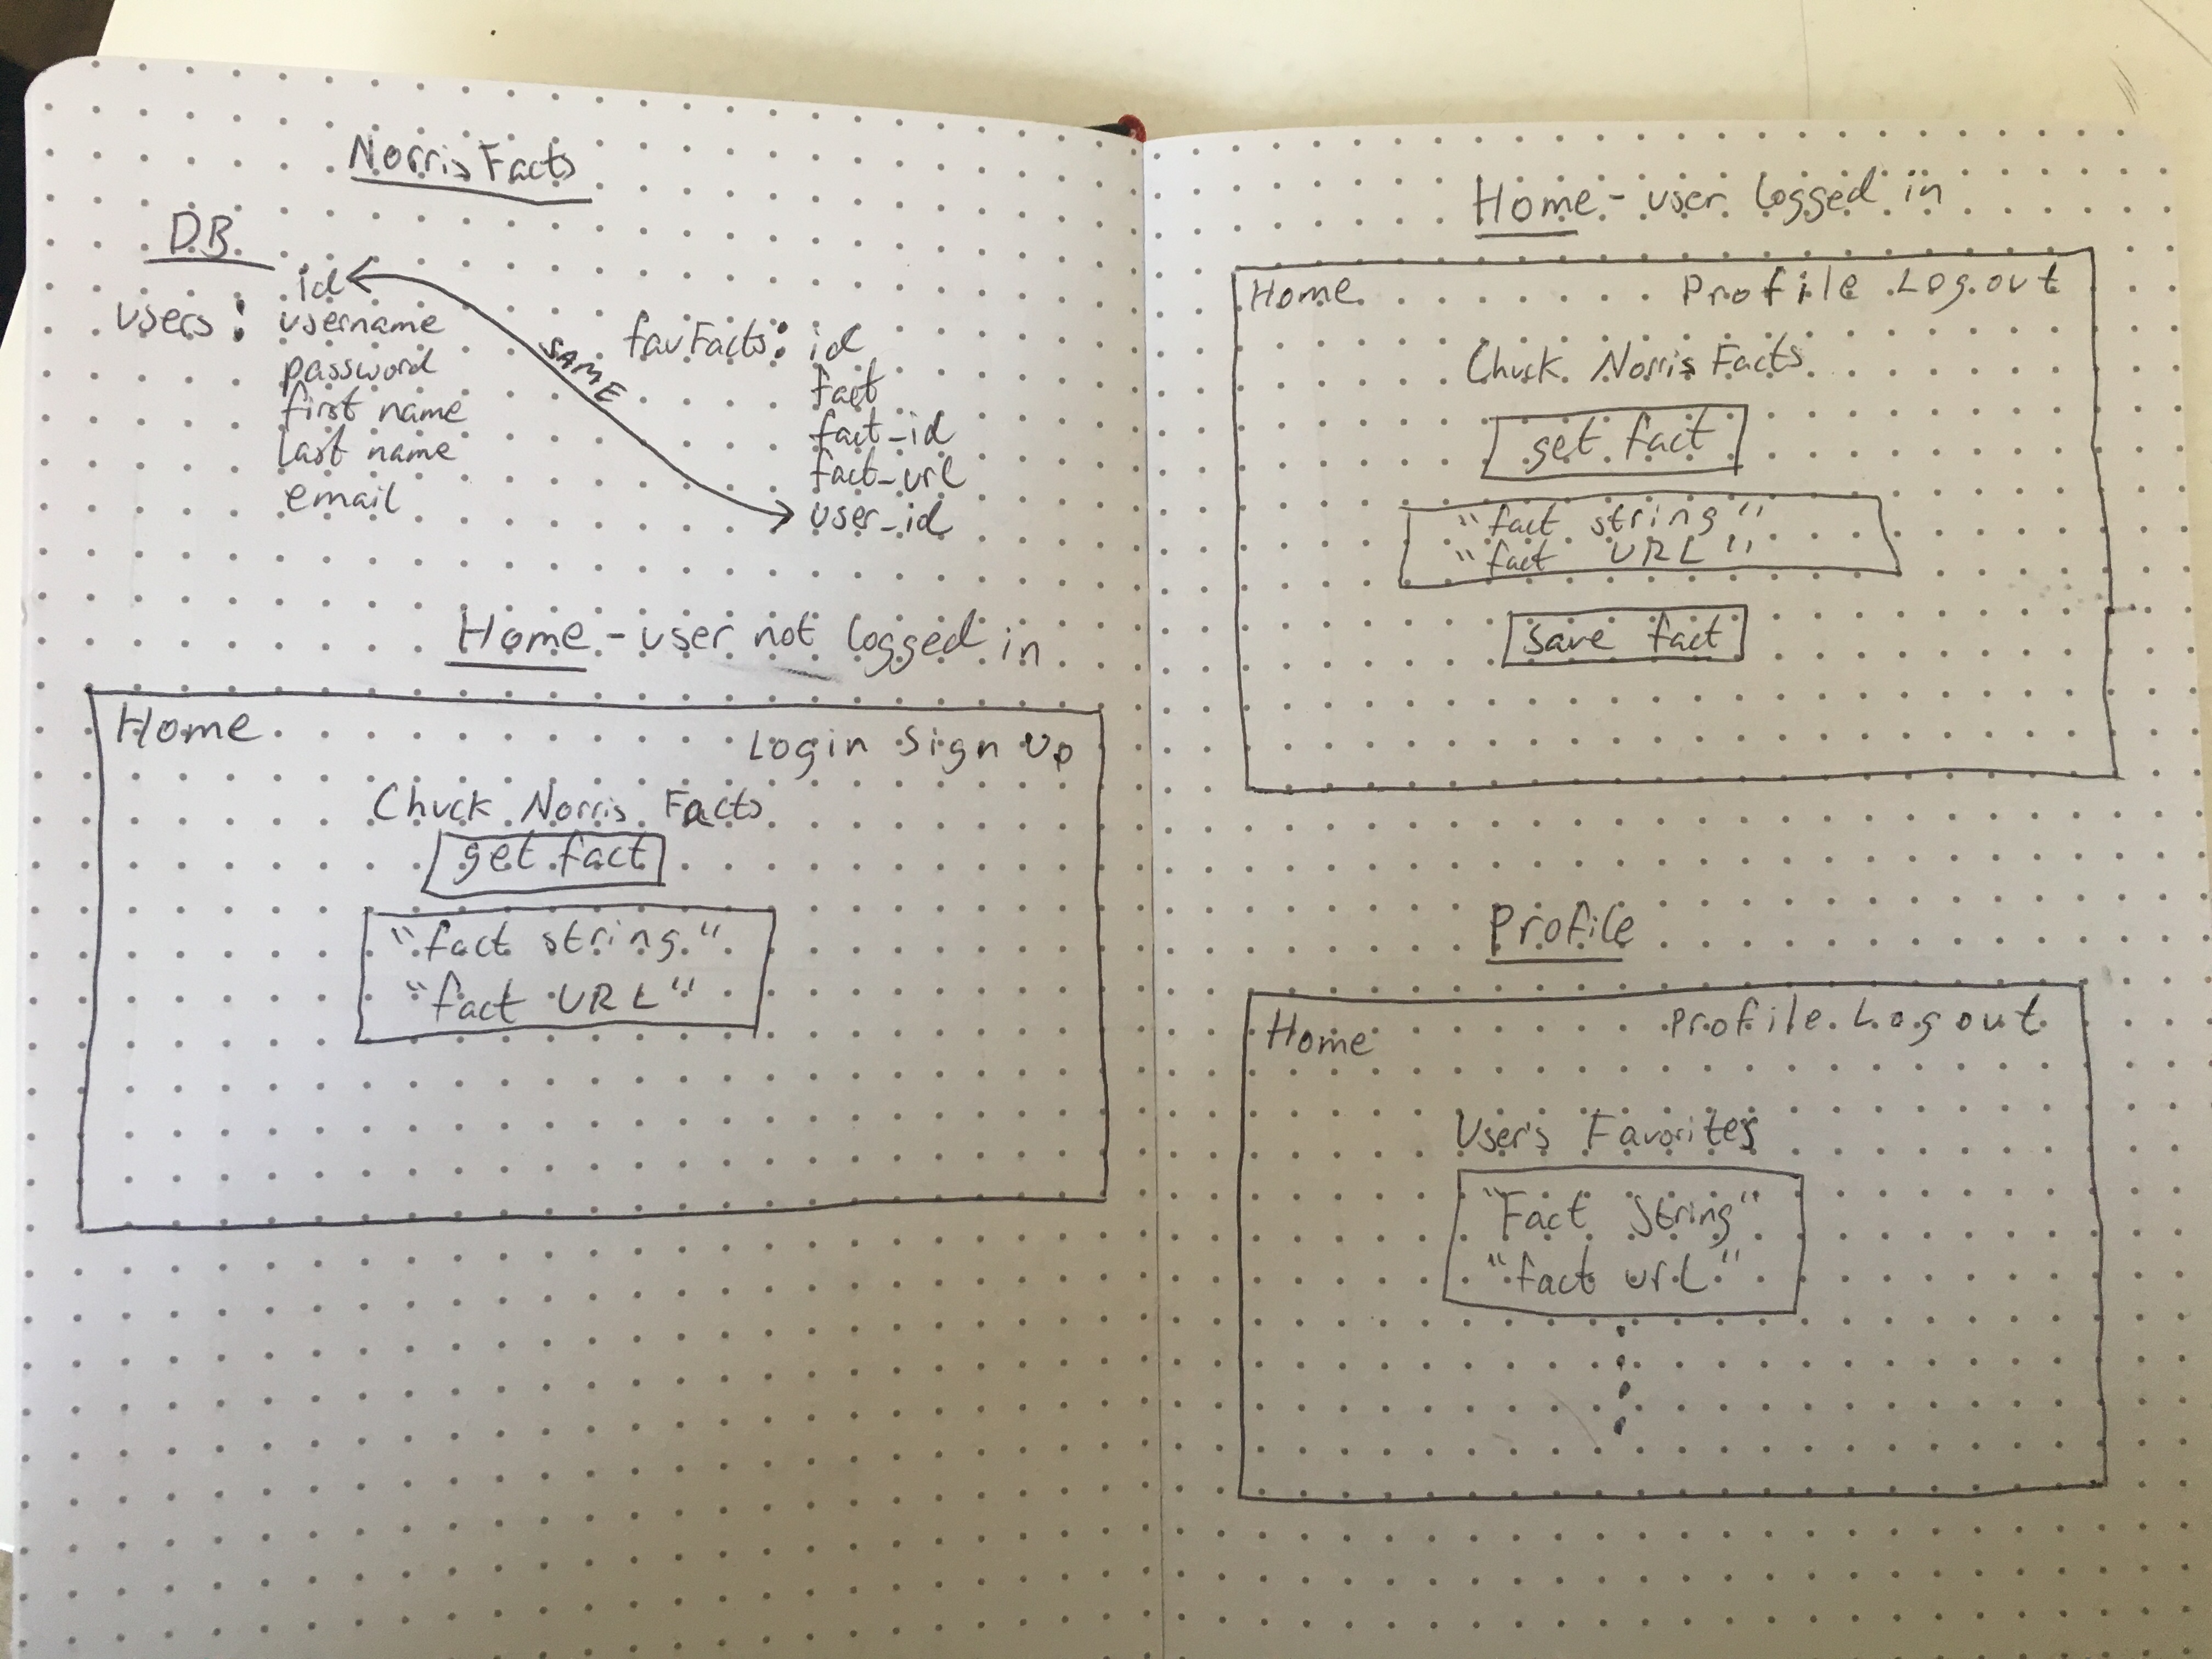 Norris Facts
DB
users: id
username
password
first name
last name
email
SAME
favFacts: id
fact
fact_id
fact_url
user_id
Home - user not logged in
Home Login Sign Up
Chuck Norris Facts
get fact
"fact string"
"fact URL"
Home - user logged in
Home Profile Logout
Chuck Norris Facts
get fact
"fact string"
"fact URL"
save fact
Profile
Home Profile Logout
User's Favorites
"Fact String"
"fact url"